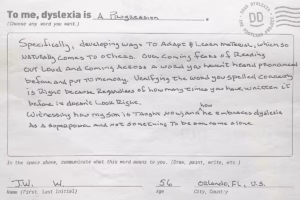 To me, dyslexia is A Progression.
(Choose any word you want.)
DD
Specifically, developing ways to Adapt & Learn material, which so
naturally comes to others. Over coming fears of Reading
out loud and coming across a word you haven't heard pronounced
before and put to memory. Verifying the word you spelled correctly
is Right because regardless of how many times you have written it
before it doesn't look Right.
Witnessing how my son is taught now, and how he embraces dyslexia
as a superpower and not something to be
In the space above, communicate what this word means to you. (Draw, paint, write, etc.)
J.W. W.
56
Orlando, FL, U.S.
Name (First, Last Initial)
Age
City, Country